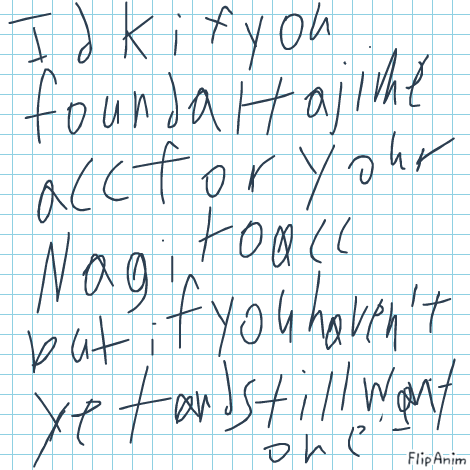 Idk if you
found a Hajime
acc for your
Nagito acc
but if you haven't
yet and still want
one
FlipAnim